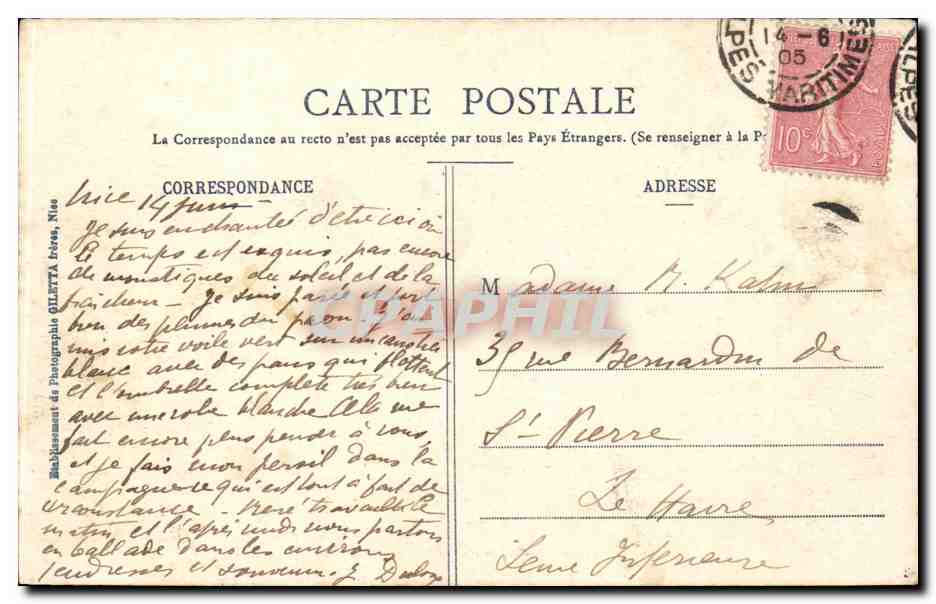 CARTE POSTALE
La Correspondance au recto n'est pas acceptée par tous les Pays Étrangers. (Se renseigner à la Po
CORRESPONDANCE
ADRESSE
14 -6
05
ALPES MARITIMES
10 c
ALPES
Etablissement de Photographie GILETTA frères, Nice
Nice 14 juin
Je suis enchantée d'être ici où
le temps est exquis, pas encore
de moustiques du soleil et de la
fraîcheur - Je suis parée et fort
bien des plumes du paon. J'ai
mis votre voile vert sur un canotier
blanc avec des pans qui flottent
et l'ombrelle complète très bien
avec une robe blanche Cela me
fait encore plus penser à vous,
et je fais mon persil dans la
campagne ce qui est tout à fait de
circonstance - René travaille le
matin et l'après midi nous partons
en ballade dans les environs
tendresses et souvenirs. J.
Madame M. Kahn
35 rue Bernardin de
St-Pierre
Le Havre
Seine Inférieure
CPAPHIL